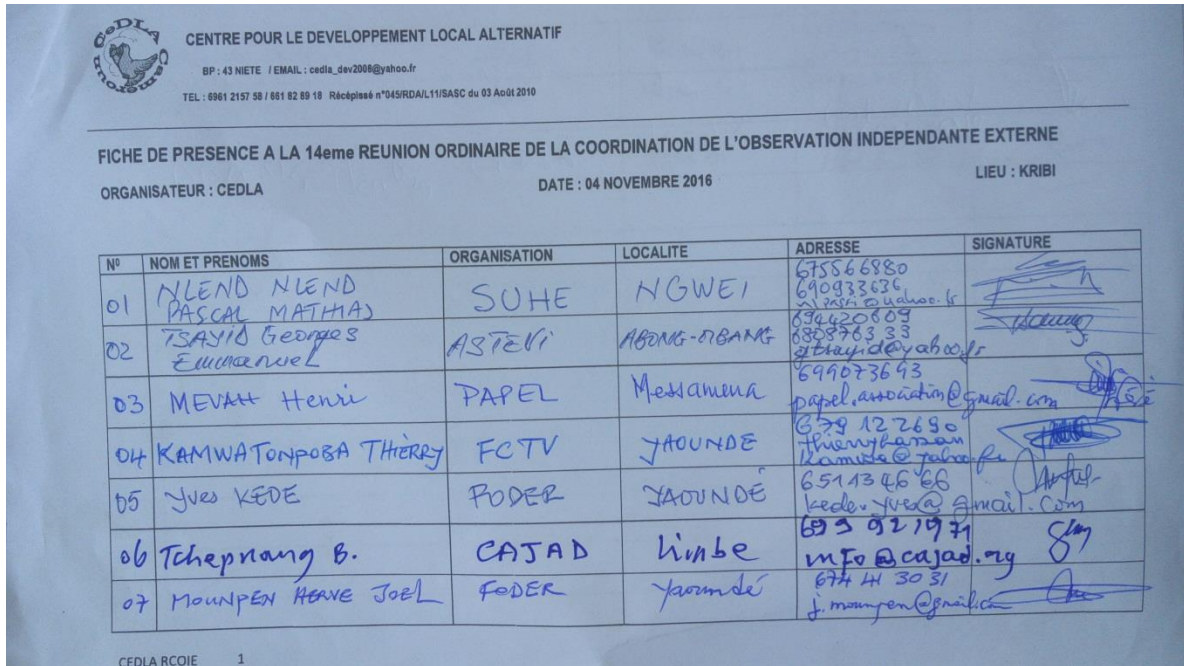 CeDLA Cameroun
CENTRE POUR LE DEVELOPPEMENT LOCAL ALTERNATIF
BP : 43 NIETE / EMAIL : cedla_dev2008@yahoo.fr
TEL : 6961 2157 58 / 661 82 89 18 Récépissé n°045/RDA/L11/SASC du 03 Août 2010
FICHE DE PRESENCE A LA 14eme REUNION ORDINAIRE DE LA COORDINATION DE L'OBSERVATION INDEPENDANTE EXTERNE
ORGANISATEUR : CEDLA DATE : 04 NOVEMBRE 2016 LIEU : KRIBI
N° NOM ET PRENOMS ORGANISATION LOCALITE ADRESSE SIGNATURE
01 NLEND NLEND PASCAL MATHIAS SUHE NGWEI 675566880
690933636,
02 TSAYID Georges Emmanuel ASTEVI ABONG-MBANG 694420609
680876333
gtsayid@yahoo.fr
03 MEVAH Henri PAPEL Messamena 699073693
papel.association@gmail.com
04 KAMWA TONPOBA THIERRY FCTV YAOUNDE 679122690
05 Yves KEDE FODER YAOUNDÉ 651134666
kede.yves@gmail.com
06 Tchepnang B. CAJAD Limbe 699 921971
info@cajad.org
07 MOUNPEN HERVE JOEL FODER Yaoundé 674 41 30 31
j.mounpen@gmail.com
CEDLA RCOIE 1